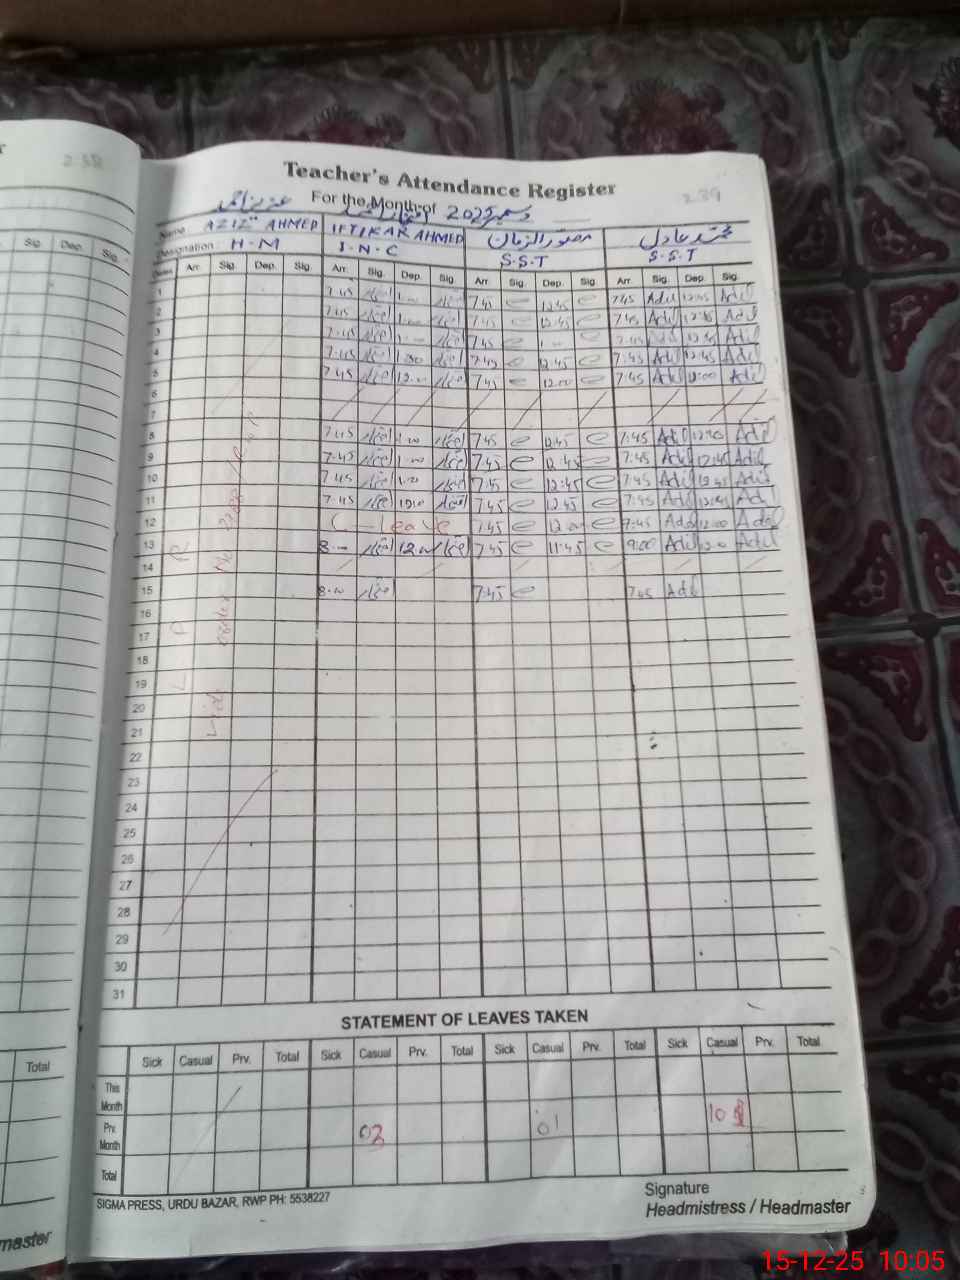 238
Teacher's Attendance Register
239
For the Month of دسمبر 2025
عزیز احمد افتخار احمد
Name AZIZ AHMED IFTIKAR AHMED مصور الزمان محمد عادل
Designation: H-M I.N.C S.S.T S.S.T
Dates Arr. Sig. Dep. Sig. Arr. Sig. Dep. Sig. Arr Sig. Dep. Sig. Arr. Sig. Dep. Sig.
1 7.45 افتخار 1.00 افتخار 7.45 12.45 7.45 Adil 12:45 Adil
2 7.45 افتخار 1.00 افتخار 7.45 12:45 7:45 Adil 12:45 Adil
3 7.45 افتخار 1.00 افتخار 7.45 1.00 7:45 Adil 12:45 Adil
4 7.45 افتخار 1.00 افتخار 7.45 12.45 7:45 Adil 12:45 Adil
5 7.45 افتخار 12.00 افتخار 7.45 12.00 7:45 Adil 12:00 Adil
6
7
8 7.45 افتخار 1.00 افتخار 7.45 12.45 7:45 Adil 12:45 Adil
9 7.45 افتخار 1.00 افتخار 7.45 12:45 7:45 Adil 12:45 Adil
10 7.45 افتخار 1.00 افتخار 7:45 12:45 7:45 Adil 12:45 Adil
11 7.45 افتخار افتخار 7:45 12:45 7:45 Adil 12:45 Adil
12 C-Leave 7:45 12:00 Adil 12:00 Adil
13 8.00 افتخار 12.00 افتخار 7.45 11:45 9:00 Adil Adil
14
15 8.00 افتخار 7:45 7:45 Adil
16
17
18
19
20
21
22
23
24
25
26
27
28
29
30
31
L P R
order No
STATEMENT OF LEAVES TAKEN
Sick Casual Prv. Total Sick Casual Prv. Total Sick Casual Prv. Total Sick Casual Prv. Total
This Month
Prv. Month 03 01 10
Total
SIGMA PRESS, URDU BAZAR, RWP PH: 5538227
Signature
Headmistress / Headmaster
Sig. Dep. Sig.
Total
master
15-12-25 10:05